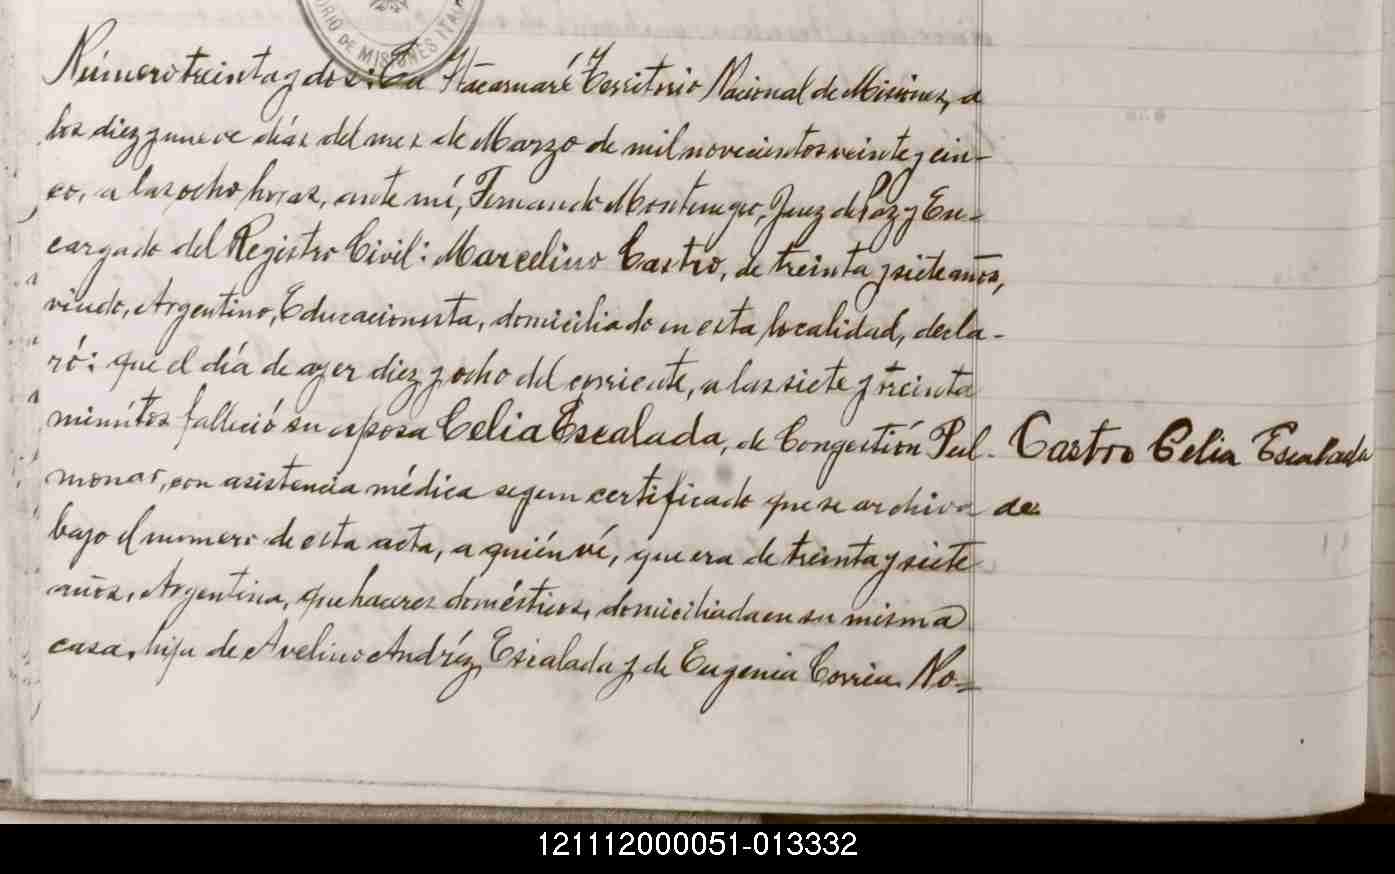 DE MISIONES ITA
Número treinta y dos: En Itacaruaré Territorio Nacional de Misiones, a
los diez y nueve días del mes de Marzo de mil novecientos veinte y cin-
co, a las ocho horas, ante mí, Fernando Montenegro, Juez de Paz y En-
cargado del Registro Civil: Marcelino Castro, de treinta y siete años,
viudo, Argentino, Educacionista, domiciliado en esta localidad, decla-
ró: que el día de ayer diez y ocho del corriente, a las siete y treinta
minútos falleció su esposa Celia Escalada, de Congestión Pul-
Castro Celia Escalada
monar, con asistencia médica segun certificado que se archiva
de
bajo el numero de esta acta, a quién ví, que era de treinta y siete
años, Argentina, quehaceres doméstivos, domiciliada en su misma
casa, hija de Avelino Andréz Escalada y de Eugenia Correa. No-
121112000051-013332